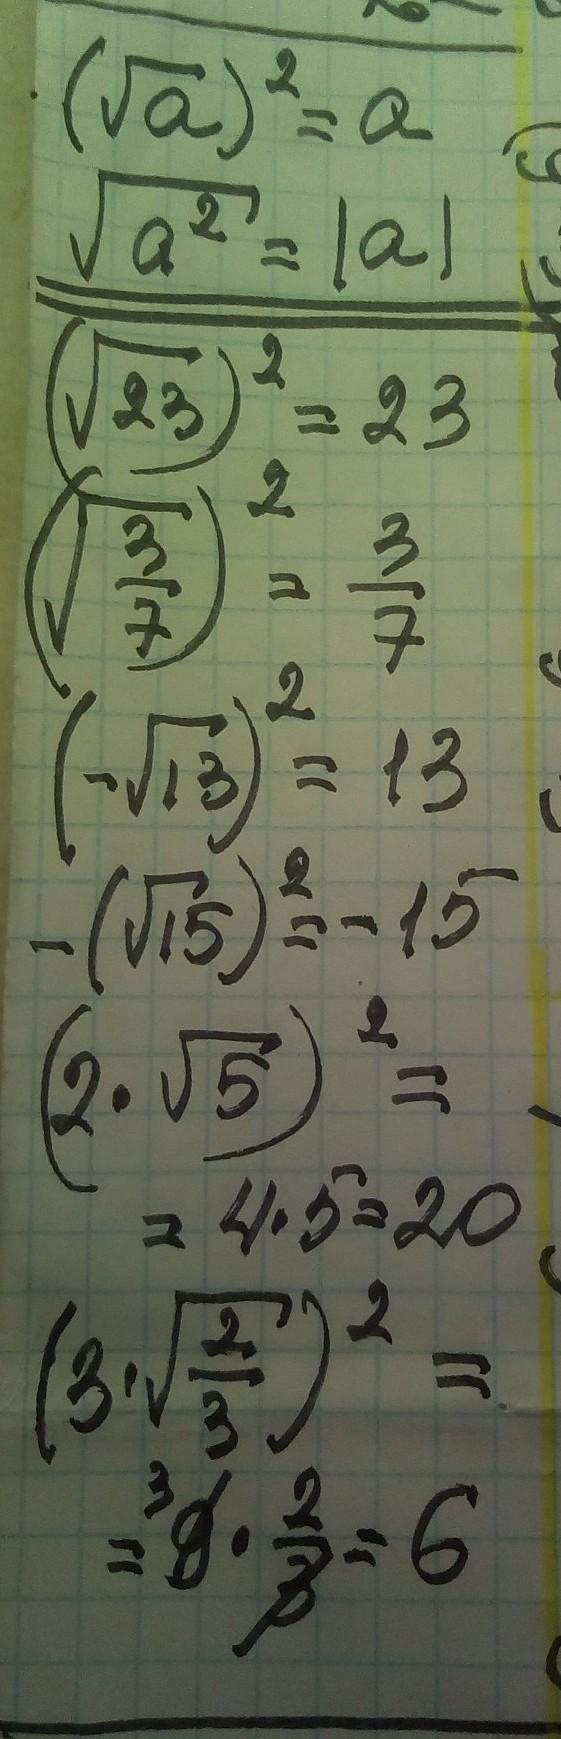 (√a)² = a
√a² = |a|
(√23)² = 23
(√3/7)² = 3/7
(-√13)² = 13
-(√15)² = -15
(2·√5)² =
= 4·5 = 20
(3·√2/3)² =
= ³9·2/3 = 6